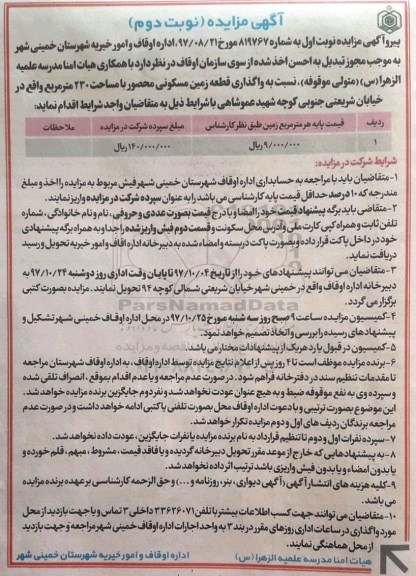 آگهی مزایده (نوبت دوم)
پیرو آگهی مزایده نوبت اول به شماره ۸۱۹۷۶۷ مورخ ۹۷/۰۸/۲۱، اداره اوقاف و امور خیریه شهرستان خمینی شهر
به موجب مجوز تبدیل به احسن اخذ شده از سوی سازمان اوقاف در نظر دارد با همکاری هیات امنا مدرسه علمیه
الزهرا (س) (متولی موقوفه)، نسبت به واگذاری قطعه زمین مسکونی محصور با مساحت ۲۳۰ مترمربع واقع در
خیابان شریعتی جنوبی کوچه شهید عموشاهی با شرایط ذیل به متقاضیان واجد شرایط اقدام نماید:
ردیف قیمت پایه هر مترمربع زمین طبق نظر کارشناس مبلغ سپرده شرکت در مزایده ملاحظات
۱ ۹/۰۰۰/۰۰۰ ریال ۱۴۰/۰۰۰/۰۰۰ ریال
شرایط شرکت در مزایده:
۱- متقاضیان باید با مراجعه به حسابداری اداره اوقاف شهرستان خمینی شهر فیش مربوط به مزایده را اخذ و مبلغ
مندرجه که ۱۰ درصد حداقل قیمت پایه کارشناسی می باشد را به عنوان سپرده شرکت در مزایده واریز نمایند.
۲- متقاضی باید برگه پیشنهاد قیمت خود را امضا و با درج قیمت بصورت عددی و حروفی، نام و نام خانوادگی، شماره
تلفن ثابت و همراه کپی کارت ملی و آدرس محل سکونت و قسمت دوم فیش واریز شده را جدا و به همراه برگه پیشنهادی
خود در داخل پاکت قرار داده و بصورت پاکت دربسته و امضاء شده به دبیرخانه اداره اوقاف و امور خیریه تحویل و رسید
دریافت نماید.
۳- متقاضیان می توانند پیشنهادهای خود را از تاریخ ۹۷/۱۰/۰۴ تا پایان وقت اداری روز دوشنبه ۹۷/۱۰/۲۴ به
دبیرخانه اداره اوقاف واقع در خمینی شهر خیابان شریعتی شمالی کوچه ۹۴ تحویل نمایند. مزایده بصورت کتبی
برگزار می گردد.
۴- کمیسیون مزایده ساعت ۹ صبح روز سه شنبه مورخ ۹۷/۱۰/۲۵ در محل اداره اوقاف خمینی شهر تشکیل و
پیشنهادهای رسیده را بررسی و اتخاذ تصمیم خواهد نمود.
۵- کمیسیون در قبول یا رد هریک از پیشنهادات مختار می باشد.
۶- برنده مزایده موظف است تا ۴ روز پس از اعلام نتایج مزایده توسط اداره اوقاف، به اداره اوقاف شهرستان مراجعه
تا مقدمات تنظیم سند در دفترخانه فراهم شود. در صورت عدم مراجعه و یا عدم اقدام بموقع، انصراف تلقی شده
و سپرده وی به نفع موقوفه ضبط و به هیچ عنوان عودت نخواهد شد و نفر دوم جایگزین برنده مزایده خواهد شد.
این موضوع بصورت ترتیبی و با دعوت اداره اوقاف محل بصورت تلفنی یا کتبی ادامه خواهد داشت و در صورت عدم
مراجعه برندگان ردیف های اول و دوم مزایده تکرار خواهد شد.
۷- سپرده نفرات اول و دوم تا تنظیم قرارداد به نام برنده مزایده یا نفرات جایگزین، عودت داده نخواهد شد.
۸- به پیشنهادهایی که خارج از موعد مقرر تحویل دبیرخانه گردیده و یا فاقد قیمت، مشروط، مبهم، قلم خورده و
یا بدون امضاء و یا بدون فیش واریزی باشد ترتیب اثر داده نخواهد شد.
۹- کلیه هزینه های انتشار آگهی (آگهی دیواری، بنر، روزنامه و...) و حق الزحمه کارشناسی بر عهده برنده مزایده
می باشد.
۱۰- متقاضیان می توانند جهت کسب اطلاعات بیشتر با تلفن ۳۳۶۲۶۰۷۱ داخلی ۳ تماس و یا جهت بازدید از محل
مورد واگذاری در ساعات اداری روزهای مقرر در بند ۳ به واحد اجارات اداره اوقاف خمینی شهر مراجعه و جهت بازدید
از محل هماهنگی نمایند.
هیات امنا مدرسه علمیه الزهرا (س) اداره اوقاف و امور خیریه شهرستان خمینی شهر
ParsNamadData